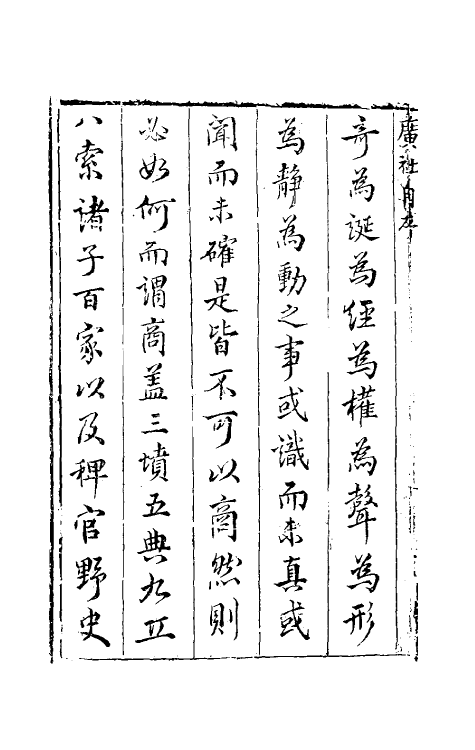 廣社
奇為誕為經為權為聲為形
為靜為動之事或識而未真或
聞而未確是皆不可以商然則
必如何而謂商蓋三墳五典九丘
八索諸子百家以及稗官野史